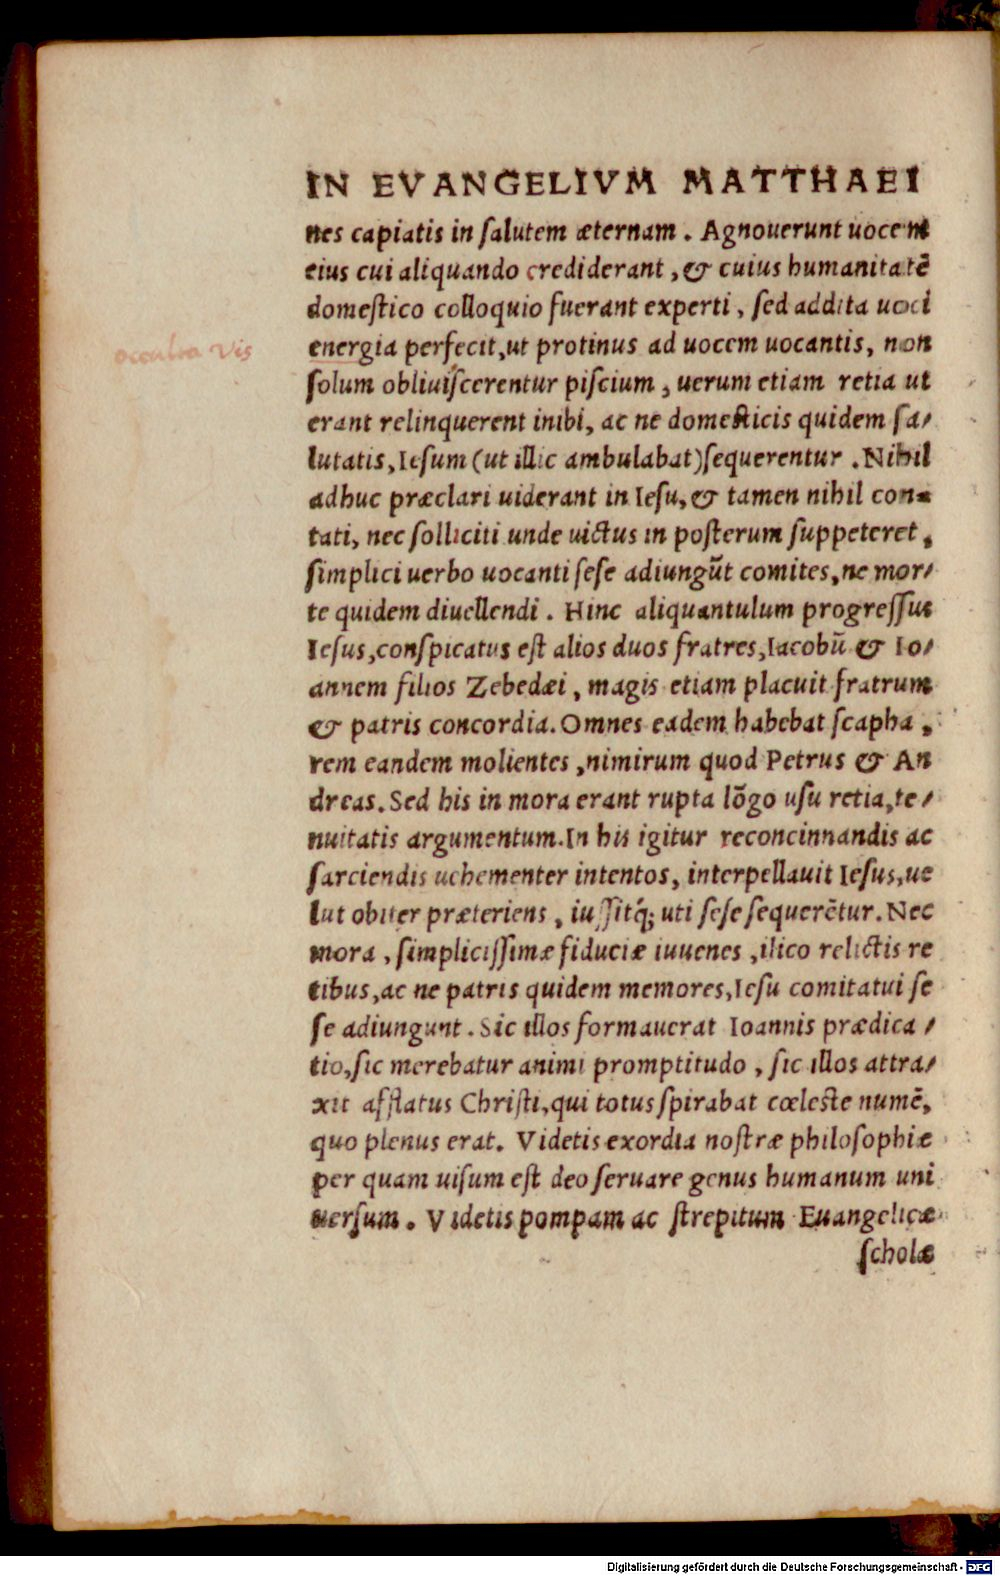 IN EVANGELIVM MATTHAEI
nes capiatis in ſalutem æternam . Agnouerunt uocem
eius cui aliquando crediderant , & cuius humanitatē
domeſtico colloquio fuerant experti , ſed addita uoci
energia perfecit,ut protinus ad uocem uocantis, non
ſolum obliuiſcerentur piſcium , uerum etiam retia ut
erant relinquerent inibi, ac ne domeſticis quidem ſa/
lutatis,Ieſum (ut illic ambulabat)ſequerentur .Nihil
adhuc præclari uiderant in Ieſu,& tamen nihil con-
tati, nec ſolliciti unde uictus in poſterum ſuppeteret ,
ſimplici uerbo uocanti ſeſe adiungūt comites,ne mor/
te quidem diuellendi . Hinc aliquantulum progreſſus
Ieſus,conſpicatus eſt alios duos fratres,Iacobū & Io/
annem filios Zebedæi , magis etiam placuit fratrum
& patris concordia.Omnes eadem habebat ſcapha ,
rem eandem molientes ,nimirum quod Petrus & An
dreas.Sed his in mora erant rupta lōgo uſu retia,te/
nuitatis argumentum.In his igitur reconcinnandis ac
ſarciendis uehementer intentos, interpellauit Ieſus,ue
lut obiter præteriens , iuſſitq́; uti ſeſe ſequerētur.Nec
mora , ſimpliciſſimæ fiduciæ iuuenes ,ilico relictis re
tibus,ac ne patris quidem memores,Ieſu comitatui ſe
ſe adiungunt . Sic illos formauerat Ioannis prædica /
tio,ſic merebatur animi promptitudo , ſic illos attra/
xit afflatus Chriſti,qui totus ſpirabat cœleſte numē,
quo plenus erat. Videtis exordia noſtræ philoſophiæ
per quam uiſum eſt deo ſeruare genus humanum uni
uerſum . Videtis pompam ac ſtrepitum Euangelicæ
ſcholæ
occulta vis
Digitalisierung gefördert durch die Deutsche Forschungsgemeinschaft - DFG